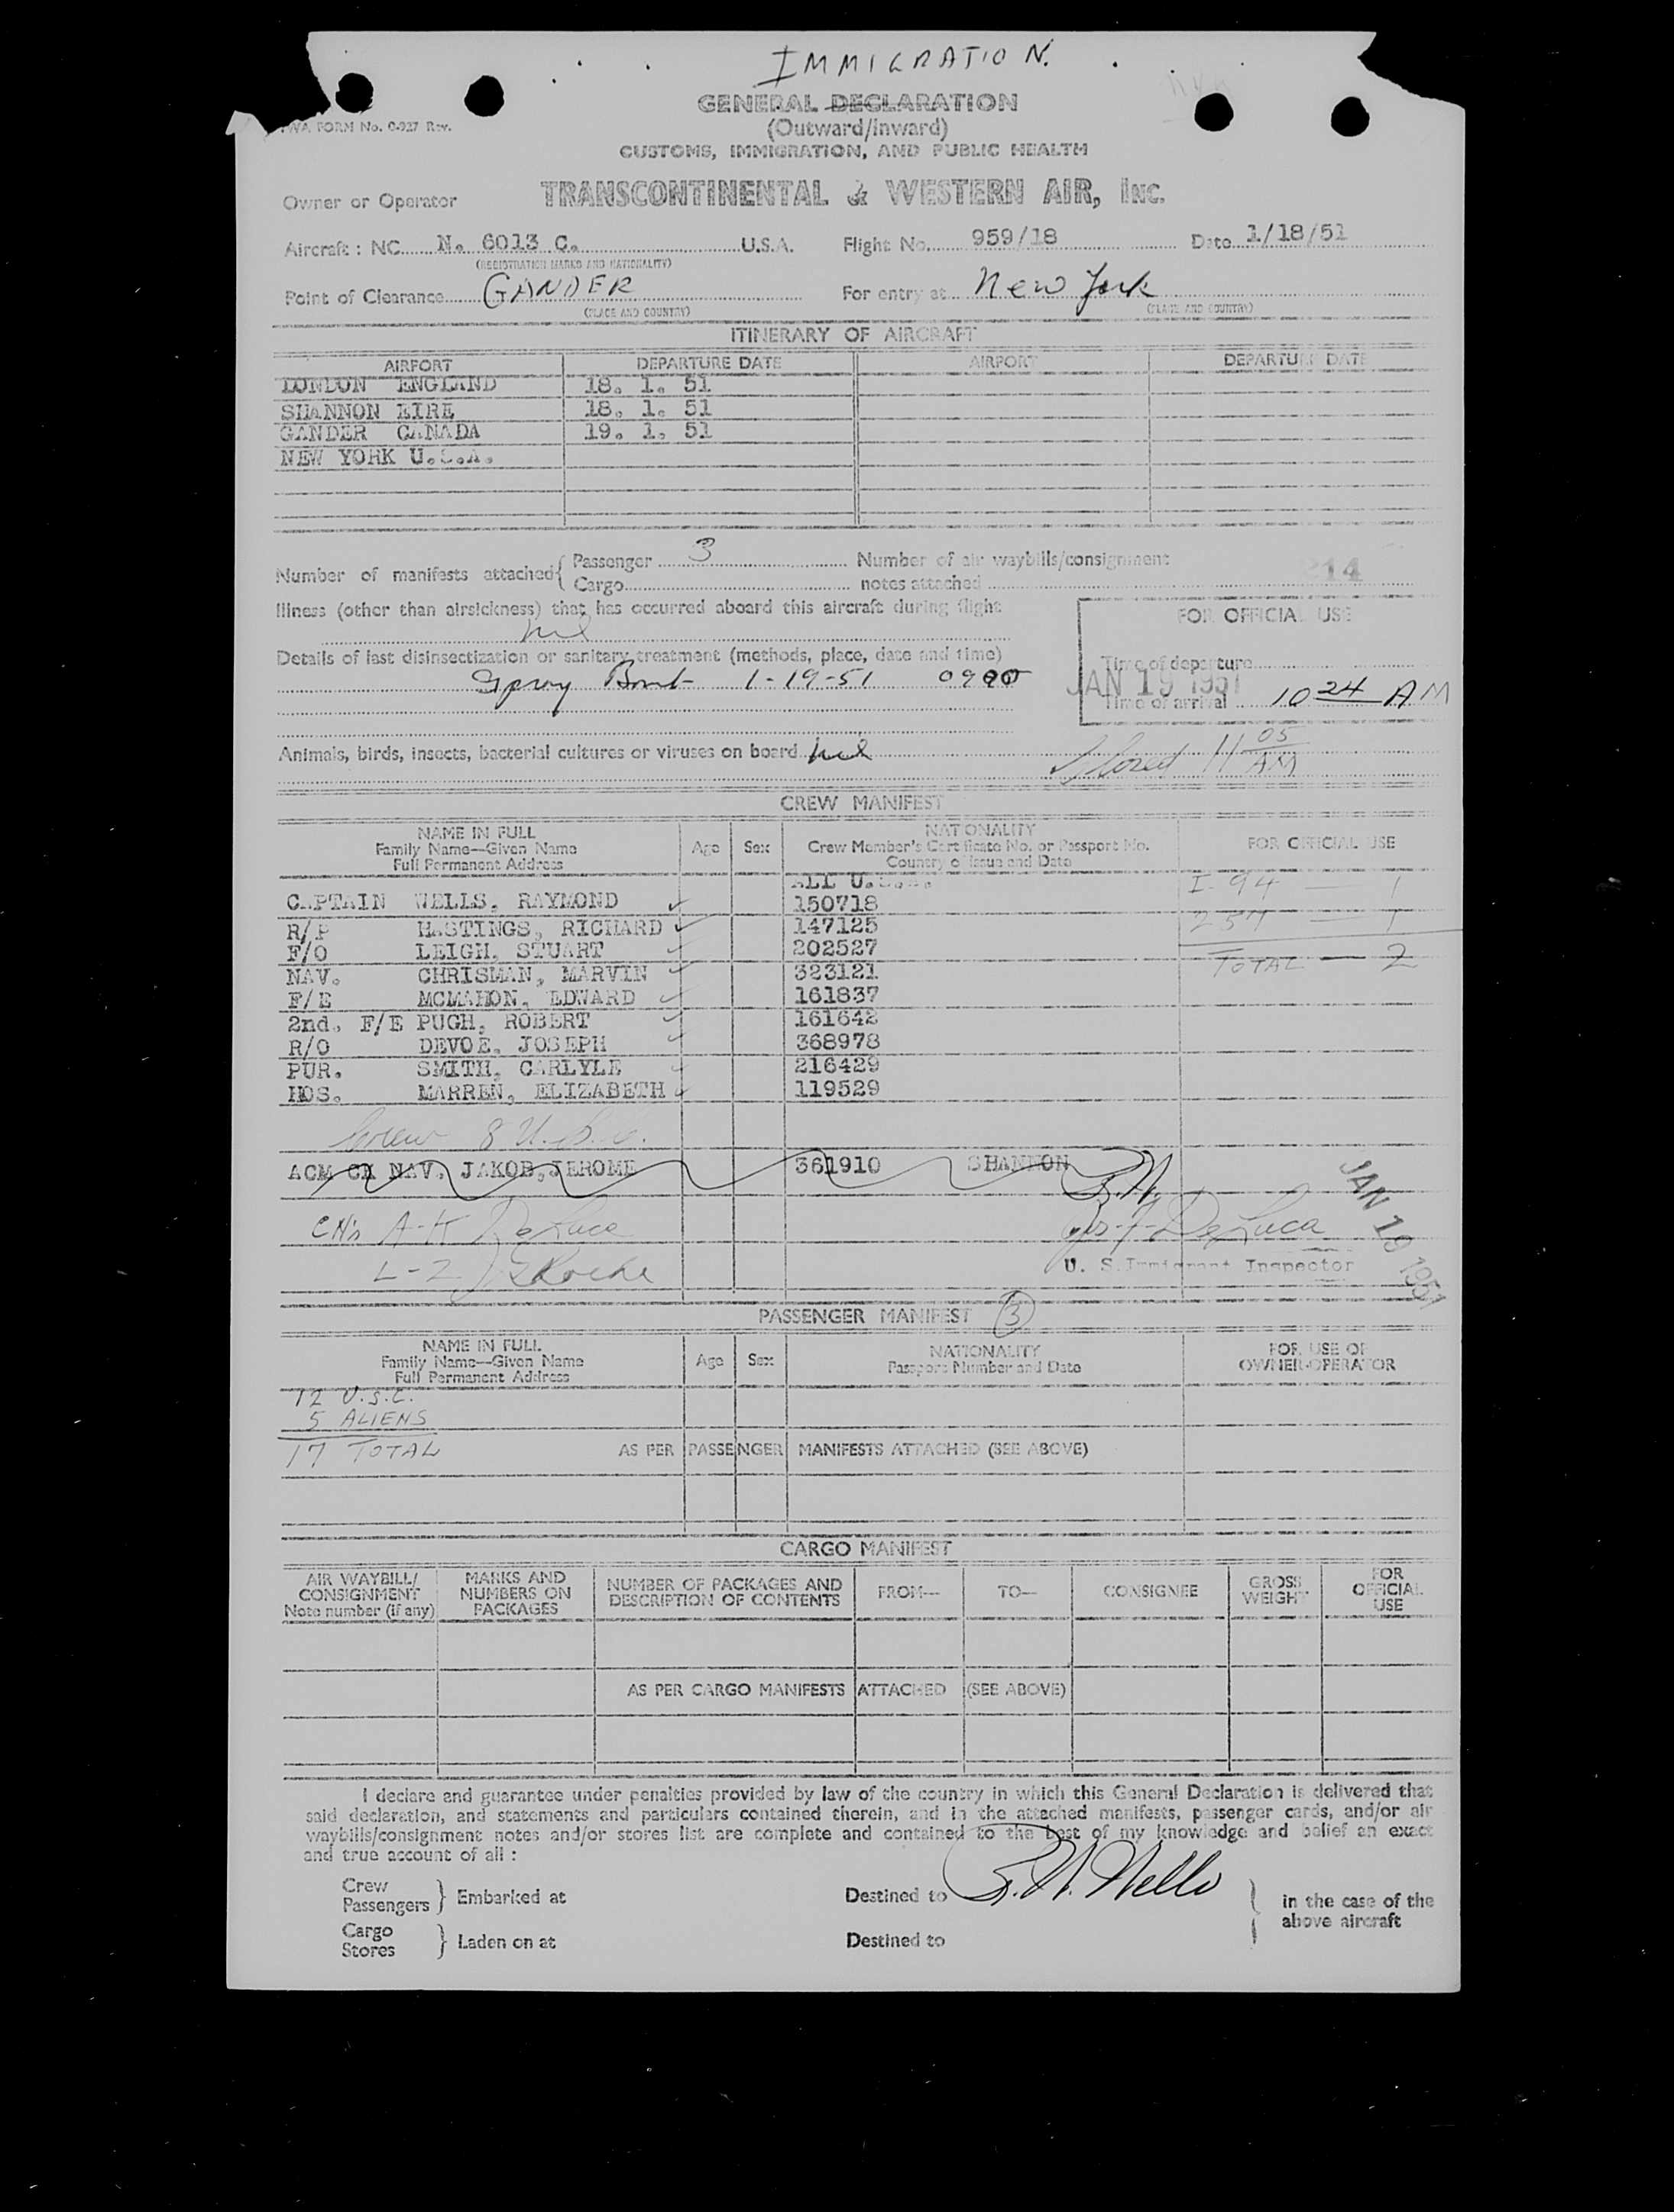 IMMIGRATION.
GENERAL DECLARATION
TWA FORM No. 0-927 Rev.
(Outward/inward)
CUSTOMS, IMMIGRATION, AND PUBLIC HEALTH
Owner or Operator TRANSCONTINENTAL & WESTERN AIR, Inc.
Aircraft : NC N. 6013 C. U.S.A. Flight No. 959/18 Date 1/18/51
(REGISTRATION MARKS AND NATIONALITY)
Point of Clearance GANDER For entry at New York
(PLACE AND COUNTRY) (PLACE AND COUNTRY)
ITINERARY OF AIRCRAFT
AIRPORT DEPARTURE DATE AIRPORT DEPARTURE DATE
LONDON ENGLAND 18. 1. 51
SHANNON EIRE 18. 1. 51
GANDER CANADA 19. 1. 51
NEW YORK U.S.A.
Number of manifests attached { Passenger 3 Number of air waybills/consignment
Cargo notes attached
214
Illness (other than airsickness) that has occurred aboard this aircraft during flight
nil
FOR OFFICIAL USE
Details of last disinsectization or sanitary treatment (methods, place, date and time)
Spray Bomb 1-19-51 0900
Time of departure
JAN 19 1951
Time of arrival 10 24 AM
Animals, birds, insects, bacterial cultures or viruses on board nil
11 05 AM
CREW MANIFEST
NAME IN FULL Age Sex NATIONALITY FOR OFFICIAL USE
Family Name—Given Name Crew Member's Certificate No. or Passport No.
Full Permanent Address Country of Issue and Date
ALL U.S.A. I-94 — 1
CAPTAIN WELLS, RAYMOND ✓ 150718
R/P HASTINGS, RICHARD ✓ 147125 257 — 1
F/O LEIGH, STUART ✓ 202527
NAV. CHRISMAN, MARVIN ✓ 323121 TOTAL — 2
F/E MCMAHON, EDWARD ✓ 161837
2nd. F/E PUGH, ROBERT ✓ 161642
R/O DEVOE, JOSEPH ✓ 368978
PUR. SMITH, CARLYLE ✓ 216429
HOS. MARREN, ELIZABETH ✓ 119529
8 U.S.C.
ACM CK NAV. JAKOB, JEROME 361910 SHANNON
A-K DeLuca DeLuca
L-Z U. S. Immigrant Inspector
JAN 19 1951
PASSENGER MANIFEST (3)
NAME IN FULL Age Sex NATIONALITY FOR USE OF
Family Name—Given Name Passport Number and Date OWNER-OPERATOR
Full Permanent Address
12 U.S.C.
5 ALIENS
17 TOTAL AS PER PASSENGER MANIFESTS ATTACHED (SEE ABOVE)
CARGO MANIFEST
AIR WAYBILL/ MARKS AND NUMBER OF PACKAGES AND FROM— TO— CONSIGNEE GROSS FOR
CONSIGNMENT NUMBERS ON DESCRIPTION OF CONTENTS WEIGHT OFFICIAL
Note number (if any) PACKAGES USE
AS PER CARGO MANIFESTS ATTACHED (SEE ABOVE)
I declare and guarantee under penalties provided by law of the country in which this General Declaration is delivered that
said declaration, and statements and particulars contained therein, and in the attached manifests, passenger cards, and/or air
waybills/consignment notes and/or stores list are complete and contained to the best of my knowledge and belief an exact
and true account of all :
Crew
Passengers } Embarked at Destined to R.N. Wells } in the case of the
above aircraft
Cargo
Stores } Laden on at Destined to